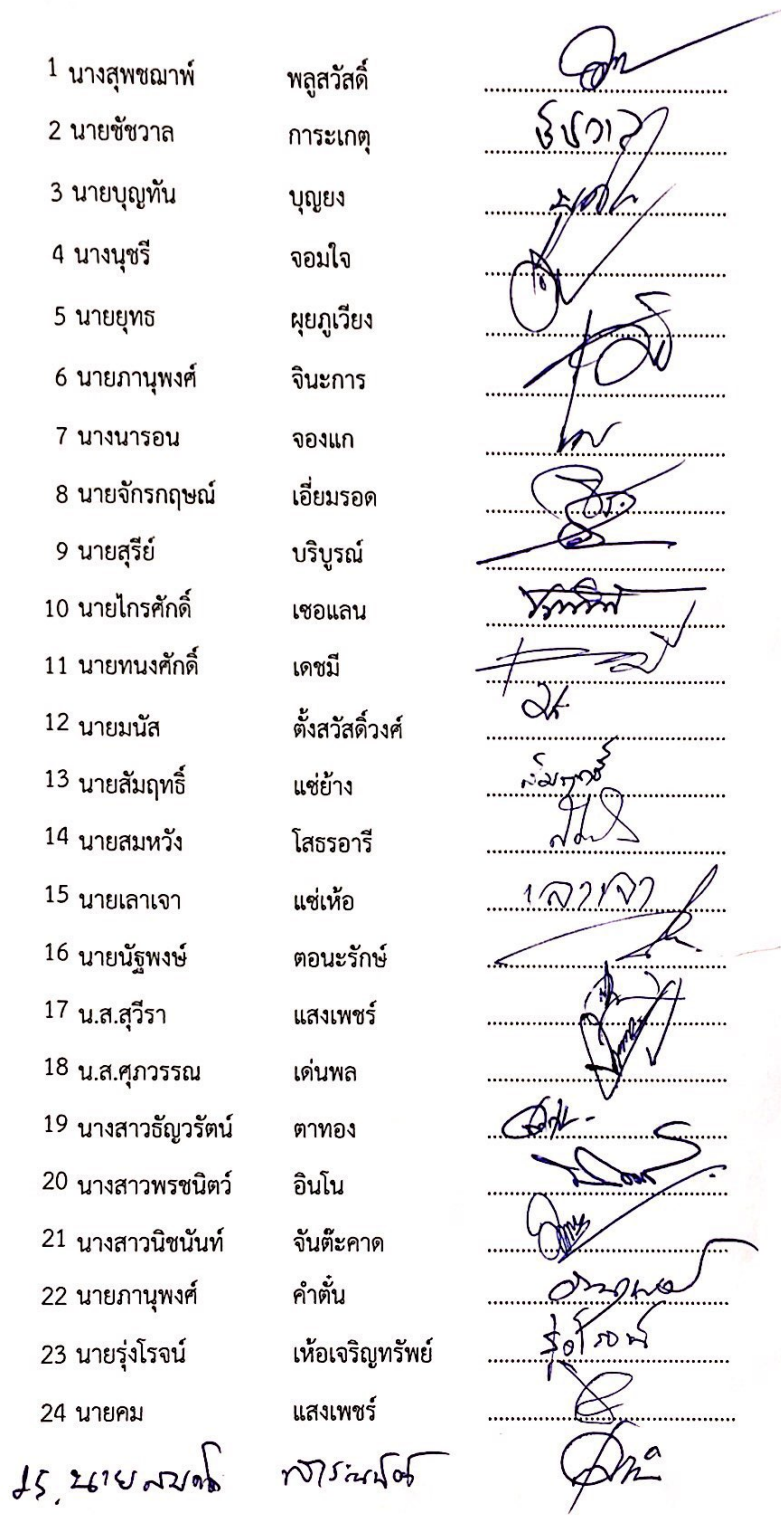 1 นางสุพชฌาพ์ พลูสวัสดิ์
2 นายชัชวาล การะเกตุ ชัชวาล
3 นายบุญทัน บุญยง
4 นางนุชรี จอมใจ
5 นายยุทธ ผุยภูเวียง
6 นายภานุพงศ์ จินะการ
7 นางนารอน จองแก
8 นายจักรกฤษณ์ เอี่ยมรอด
9 นายสุรีย์ บริบูรณ์
10 นายไกรศักดิ์ เชอแลน
11 นายทนงศักดิ์ เดชมี
12 นายมนัส ตั้งสวัสดิ์วงศ์
13 นายสัมฤทธิ์ แซ่ย้าง สัมฤทธิ์
14 นายสมหวัง โสธรอารี
15 นายเลาเจา แซ่เห้อ เลาเจา
16 นายนัฐพงษ์ ตอนะรักษ์
17 น.ส.สุวีรา แสงเพชร์
18 น.ส.ศุภวรรณ เด่นพล
19 นางสาวธัญวรัตน์ ตาทอง
20 นางสาวพรชนิตว์ อินโน
21 นางสาวนิชนันท์ จันต๊ะคาด
22 นายภานุพงศ์ คำตั๋น
23 นายรุ่งโรจน์ เห้อเจริญทรัพย์ รุ่งโรจน์
24 นายคม แสงเพชร์
25. นาย